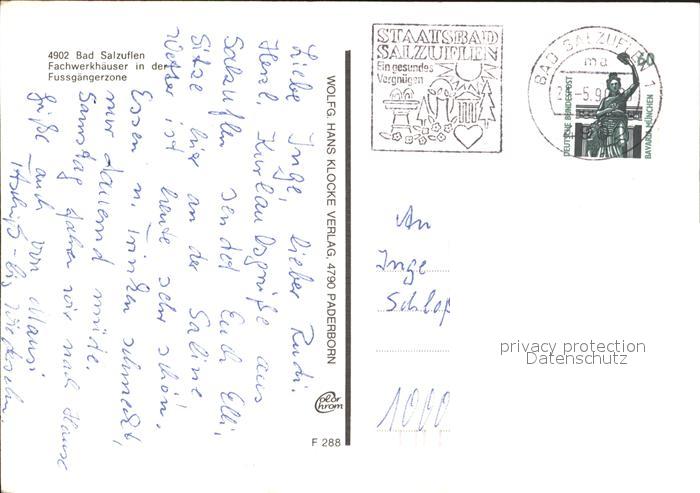 4902 Bad Salzuflen
Fachwerkhäuser in der
Fussgängerzone
Liebe Inge, lieber Rudi.
Herzl. Kurlaubsgrüße aus
Salzuflen sendet Euch Elli,
Sitze hier an der Saline
Wetter ist heute sehr schön.
Essen u. Trinken schmeckt,
nur dauernd müde.
Samstag fahren wir nach Hause
Grüße auch von Mausi
bis Wiedersehn.
WOLFG. HANS KLOCKE VERLAG, 4790 PADERBORN
Color
chrom
F 288
STAATSBAD
SALZUFLEN
Ein gesundes
Vergnügen
BAD SALZUFLEN 1
ma
-5.9
60
DEUTSCHE BUNDESPOST
BAVARIA MÜNCHEN
An
Inge
Schlop
1000
privacy protection
Datenschutz